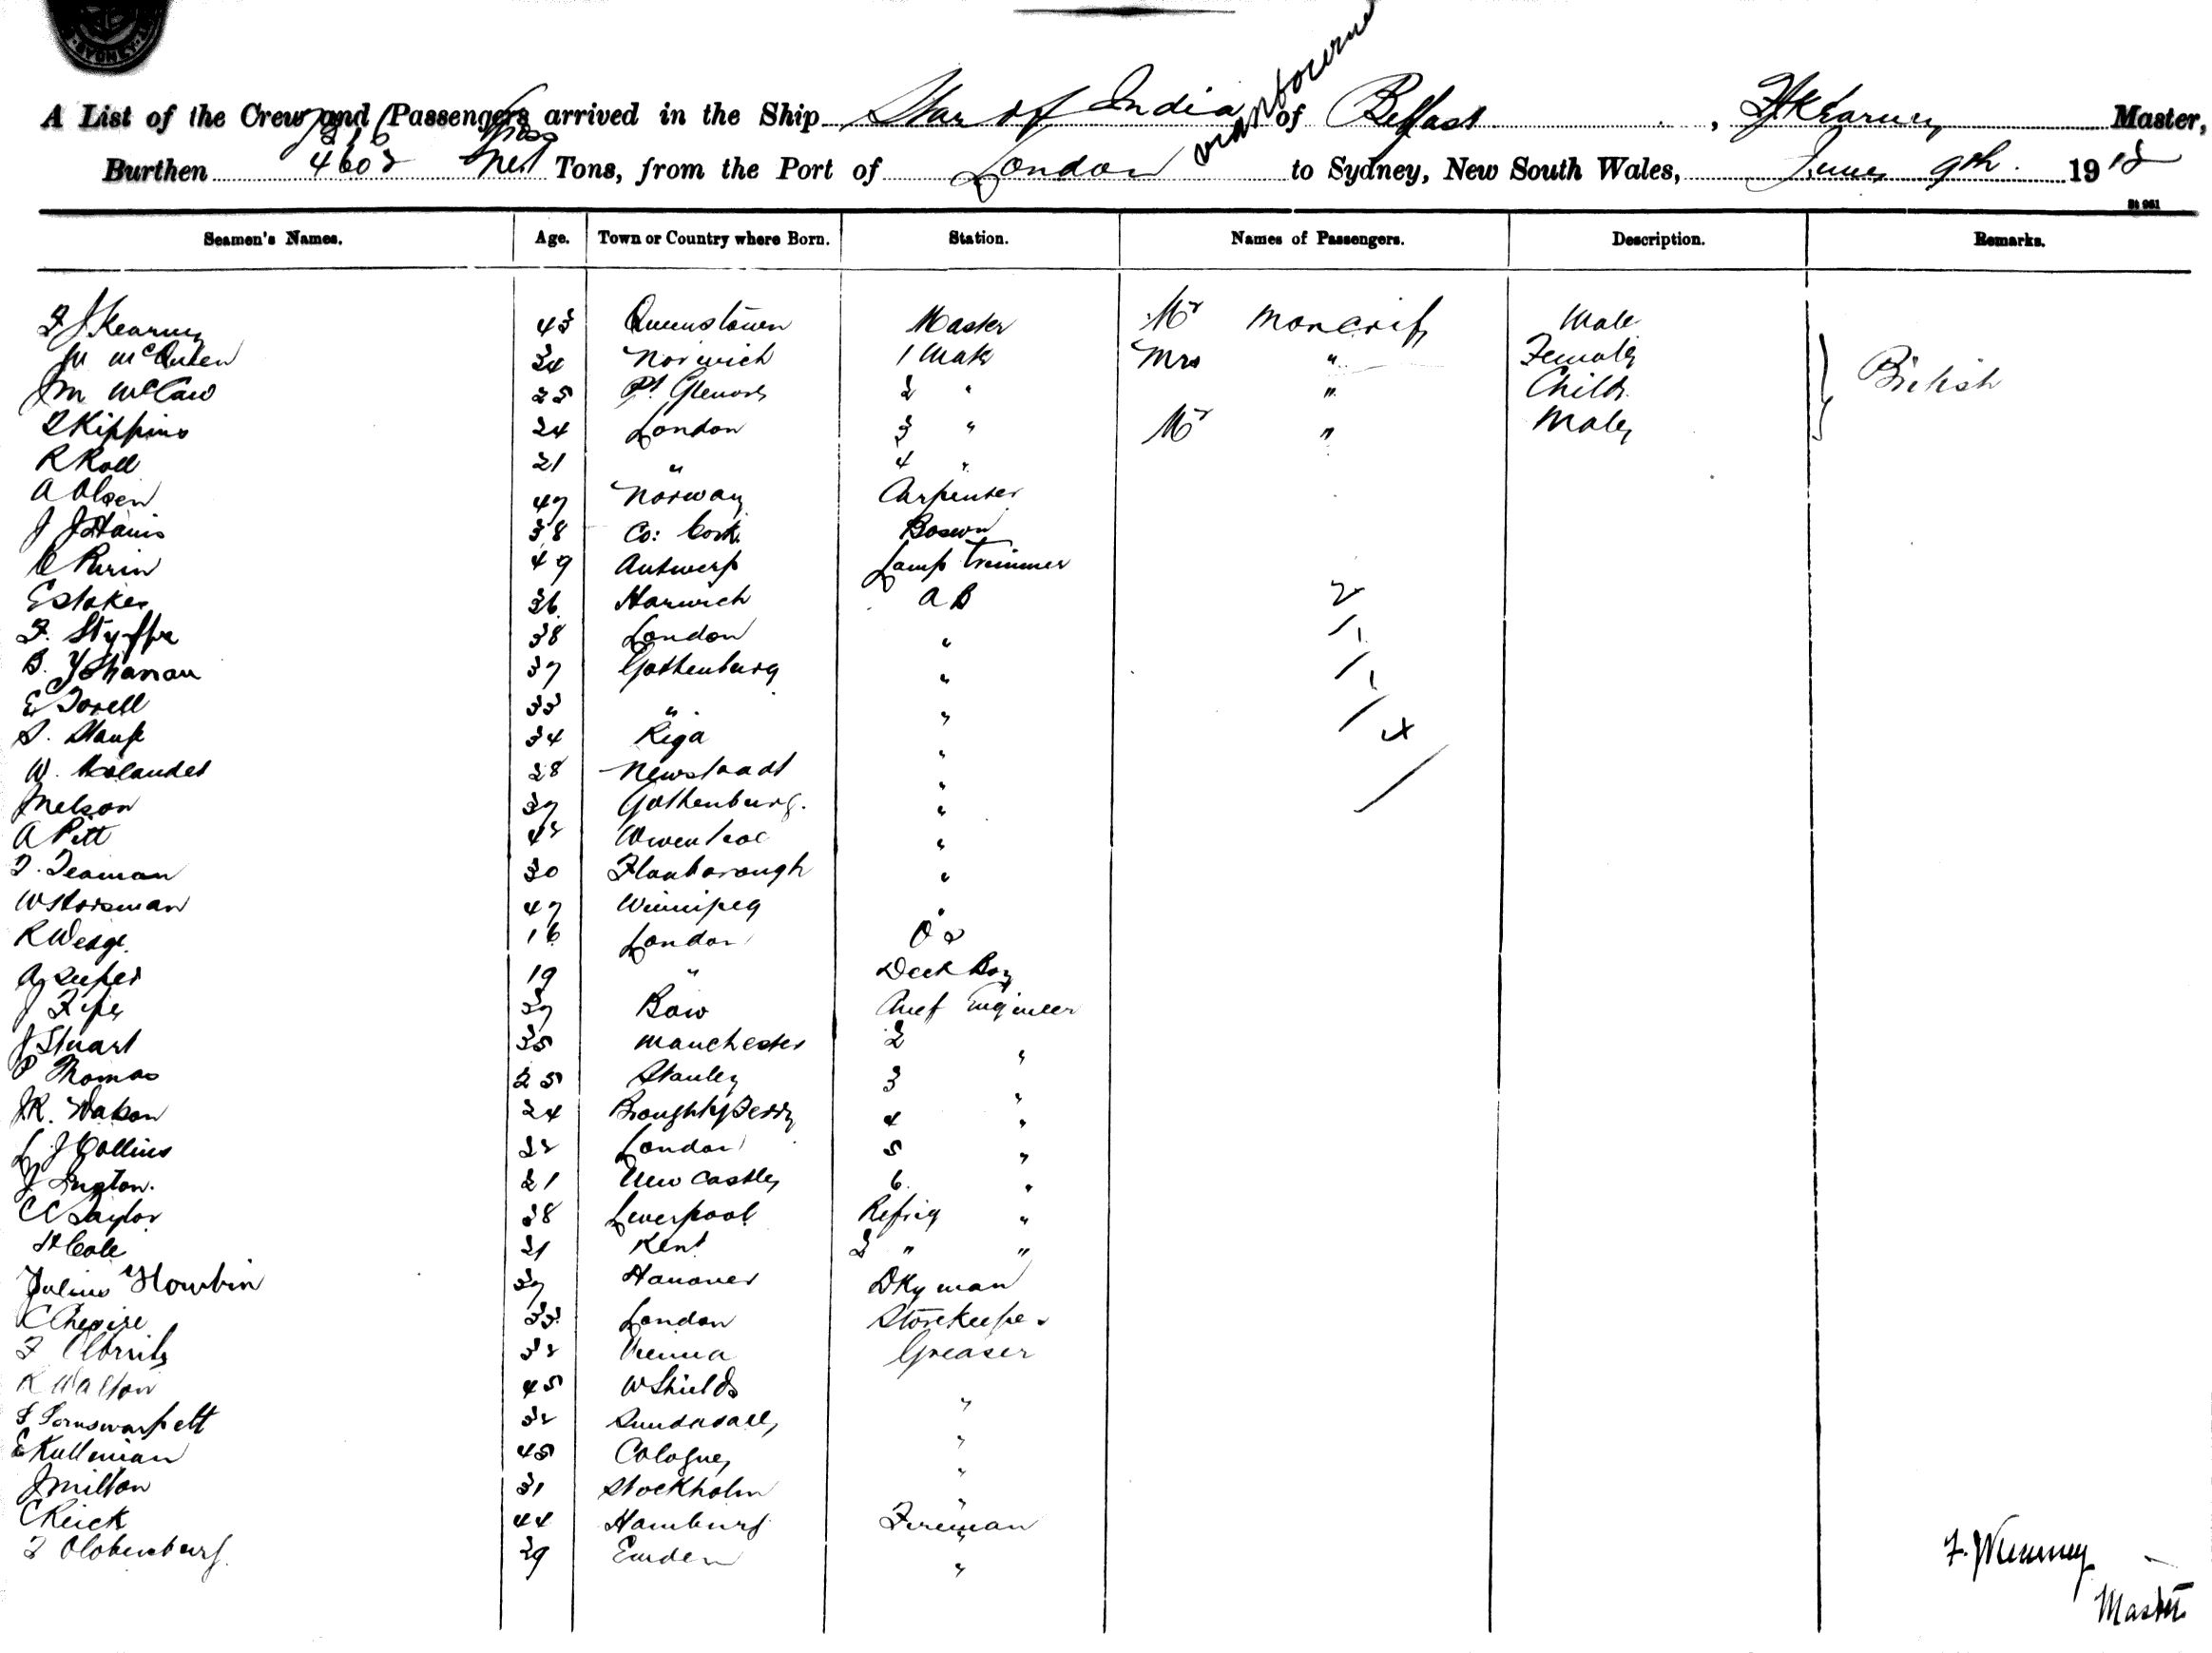 SYDNEY
via Melbourne
A List of the Crew and Passengers arrived in the Ship Star of India of Belfast, F J Kearney Master,
7316 Gross
Burthen 4602 Net Tons, from the Port of London to Sydney, New South Wales, June 9th 1912
St 961
Seamen's Names. Age. Town or Country where Born. Station. Names of Passengers. Description. Remarks.
F J Kearney 43 Queenstown Master Mr Moncrief Male
M McQueen 34 Norwich 1 Mate Mrs " Female
J M McCaw 25 Pt Glenone 2 " " Child British
Kipping 24 London 3 " Mr " Male
R Roll 21 " 4 "
A Olsen 47 Norway Carpenter
J J Hains 38 Co: Cork Bosun
49 Antwerp Lamp Trimmer
E Stokes 36 Harwich A B 2
F. Styffe 38 London " 1
B. Johanson 37 Gothenburg " 1
E Torell 33 " "
S. 34 Riga " 4
W. 28 Newstaadt "
J Nelson 37 Gothenburg. "
A Pitt 42 Wivenhoe "
F. Teaman 30 Flamborough "
W Horsman 47 Winnipeg "
R Wedge 16 London O S
A 19 " Deck Boy
J Fife 37 Bow Chief Engineer
J Stuart 35 Manchester 2 "
P Thomas 25 Stanley 3 "
J R. Watson 24 Broughty Ferry 4 "
L J Collins 22 London 5 "
J Lugton. 21 New Castle 6 "
C C Taylor 38 Liverpool Refrig "
H Cole 21 Kent 2 " "
Julius 37 Hanover Dky man
C Chesire 33 London Storekeeper
F 32 Vienna Greaser
R Walton 45 W Shields "
32 "
E Kullman 45 Cologne "
J Milton 31 Stockholm "
C Reick 44 Hamburg Fireman
F Oldenburg. 29 Emden "
F. J Kearney
Master